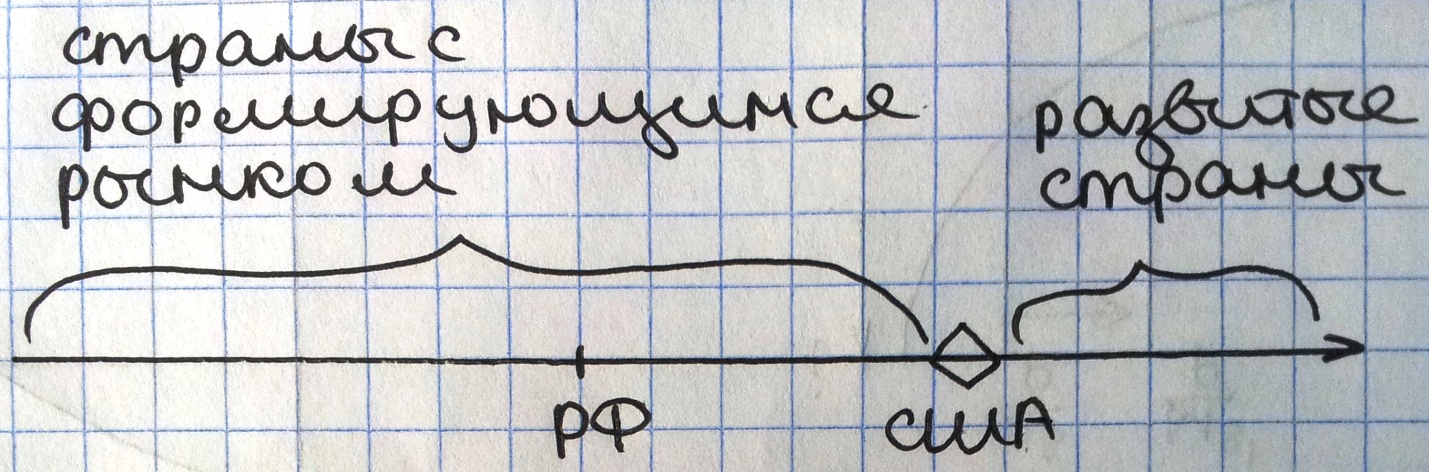 страны с
формирующимся
рынком
развитые
страны
РФ
США